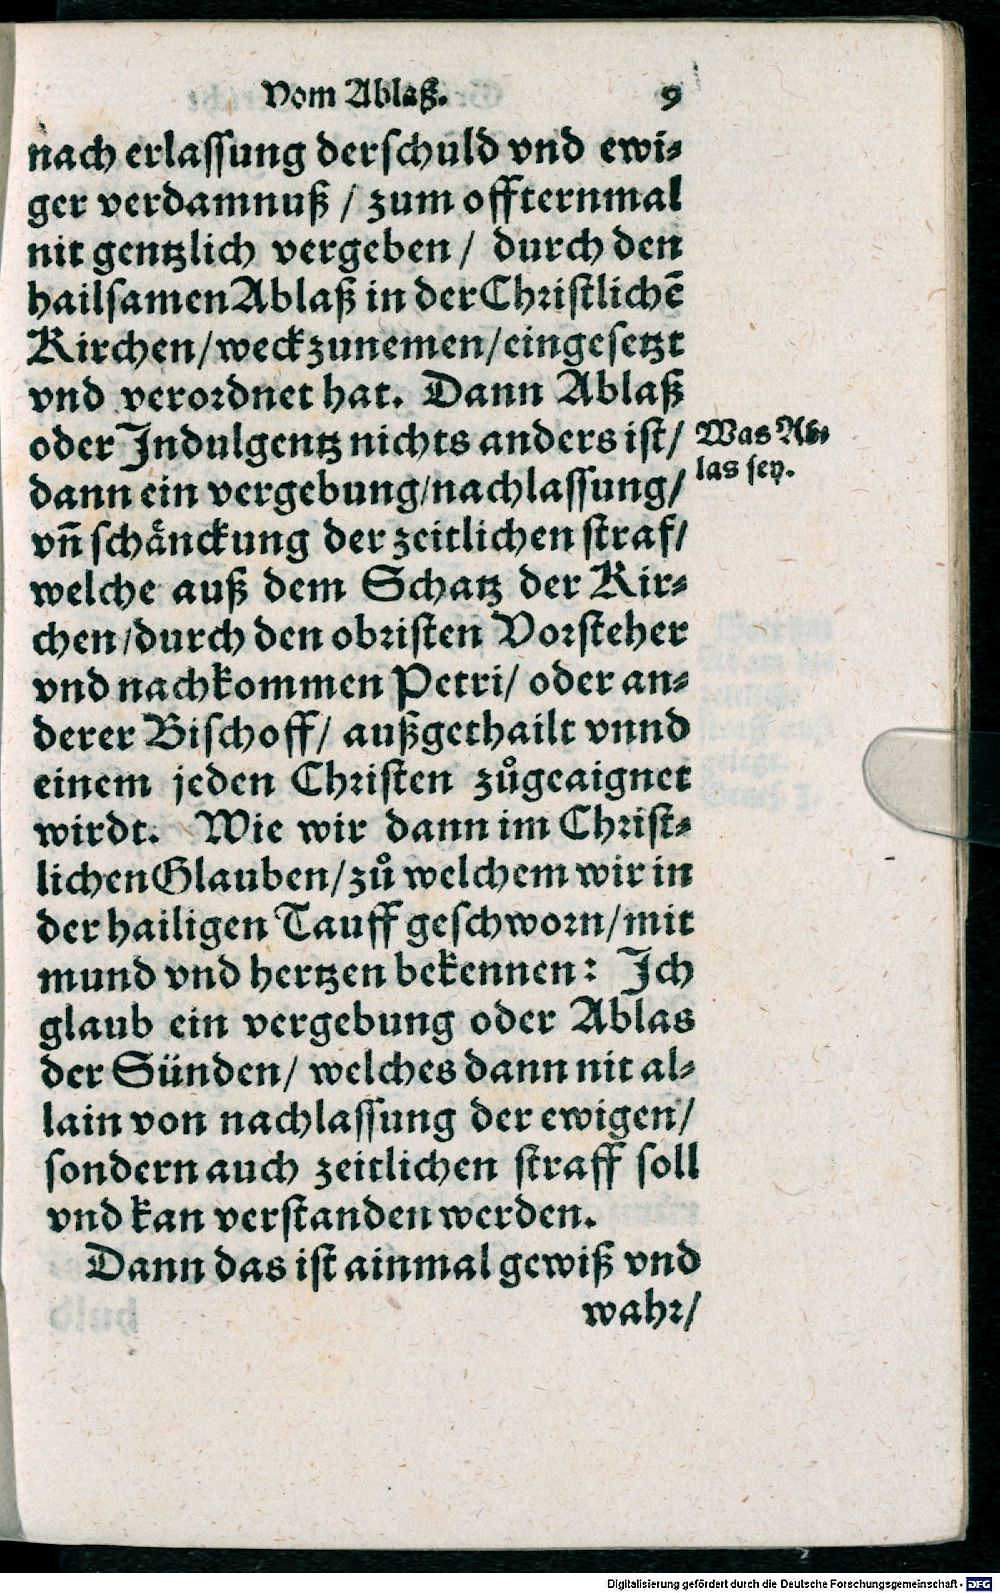 Vom Ablaß. 9
nach erlassung der schuld vnd ewi-
ger verdamnuß / zum offternmal
nit gentzlich vergeben / durch den
hailsamen Ablaß in der Christlichē
Kirchen / weck zunemen / eingesetzt
vnd verordnet hat. Dann Ablaß
oder Indulgentz nichts anders ist /
Was Ab-
las sey.
dann ein vergebung / nachlassung /
vñ schänckung der zeitlichen straf /
welche auß dem Schatz der Kir-
chen / durch den obristen Vorsteher
vnd nachkommen Petri / oder an-
derer Bischoff / außgethailt vnnd
einem jeden Christen zůgeaignet
wirdt. Wie wir dann im Christ-
lichen Glauben / zů welchem wir in
der hailigen Tauff geschworn / mit
mund vnd hertzen bekennen: Ich
glaub ein vergebung oder Ablas
der Sünden / welches dann nit al-
lain von nachlassung der ewigen /
sondern auch zeitlichen straff soll
vnd kan verstanden werden.
Dann das ist ainmal gewiß vnd
wahr /
Digitalisierung gefördert durch die Deutsche Forschungsgemeinschaft - DFG